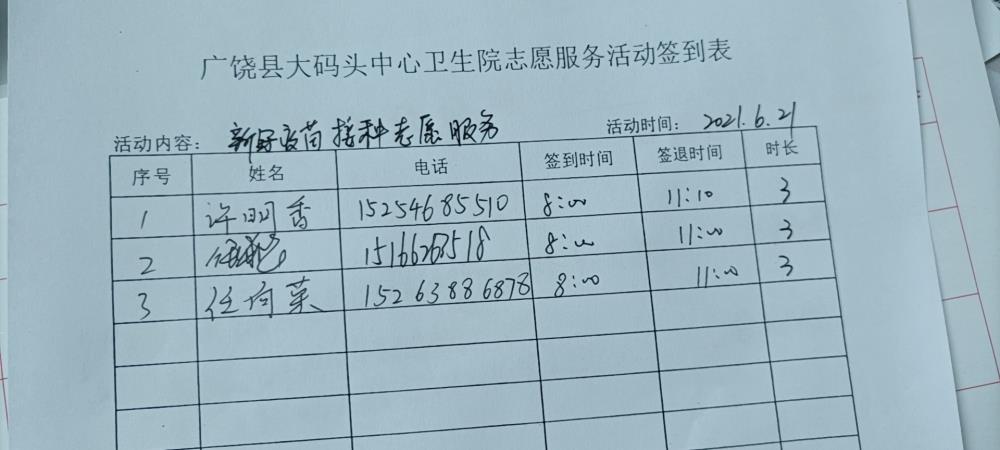 广饶县大码头中心卫生院志愿服务活动签到表
活动内容： 新冠疫苗接种志愿服务 活动时间： 2021.6.21
序号 姓名 电话 签到时间 签退时间 时长
1 许明香 15254685510 8:00 11:10 3
2 8:00 11:00 3
3 任向菜 15263886878 8:00 11:00 3